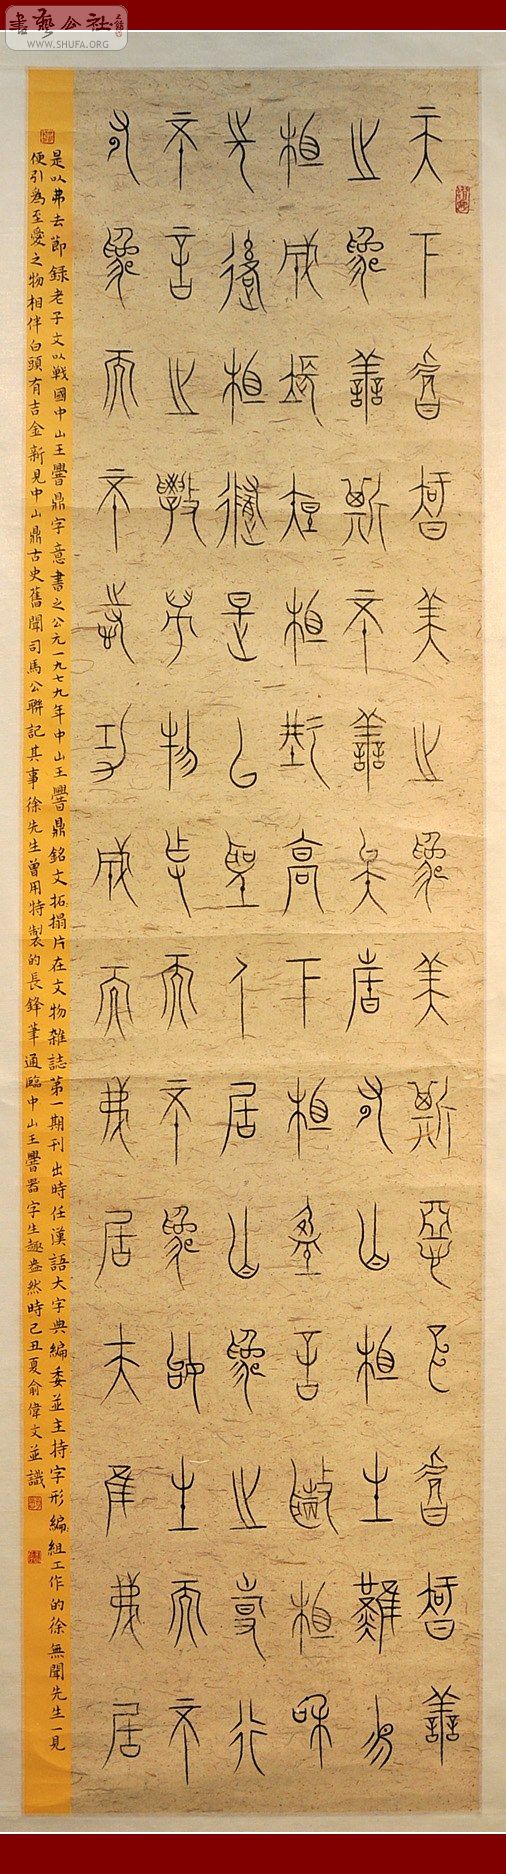 書藝公社
WWW.SHUFA.ORG
天下皆智美之為美斯惡已皆智善
之為善斯不善矣故有亡相生難易
相成長短相型高下相盈音聲相和
先後相隨是以聖人居亡為之事行
不言之教萬物作而不為始生而不
有為而不恃功成而弗居夫唯弗居
是以弗去節録老子文以戰國中山王𰯼鼎字意書之公元一九七九年中山王𰯼鼎銘文拓搨片在文物雜誌第一期刊出時任漢語大字典編委並主持字形編組工作的徐無聞先生一見
便引為至愛之物相伴白頭有吉金新見中山鼎古史舊聞司馬公聯記其事徐先生曾用特製的長鋒筆通臨中山王𰯼器字生趣盎然時己丑夏俞偉文並識